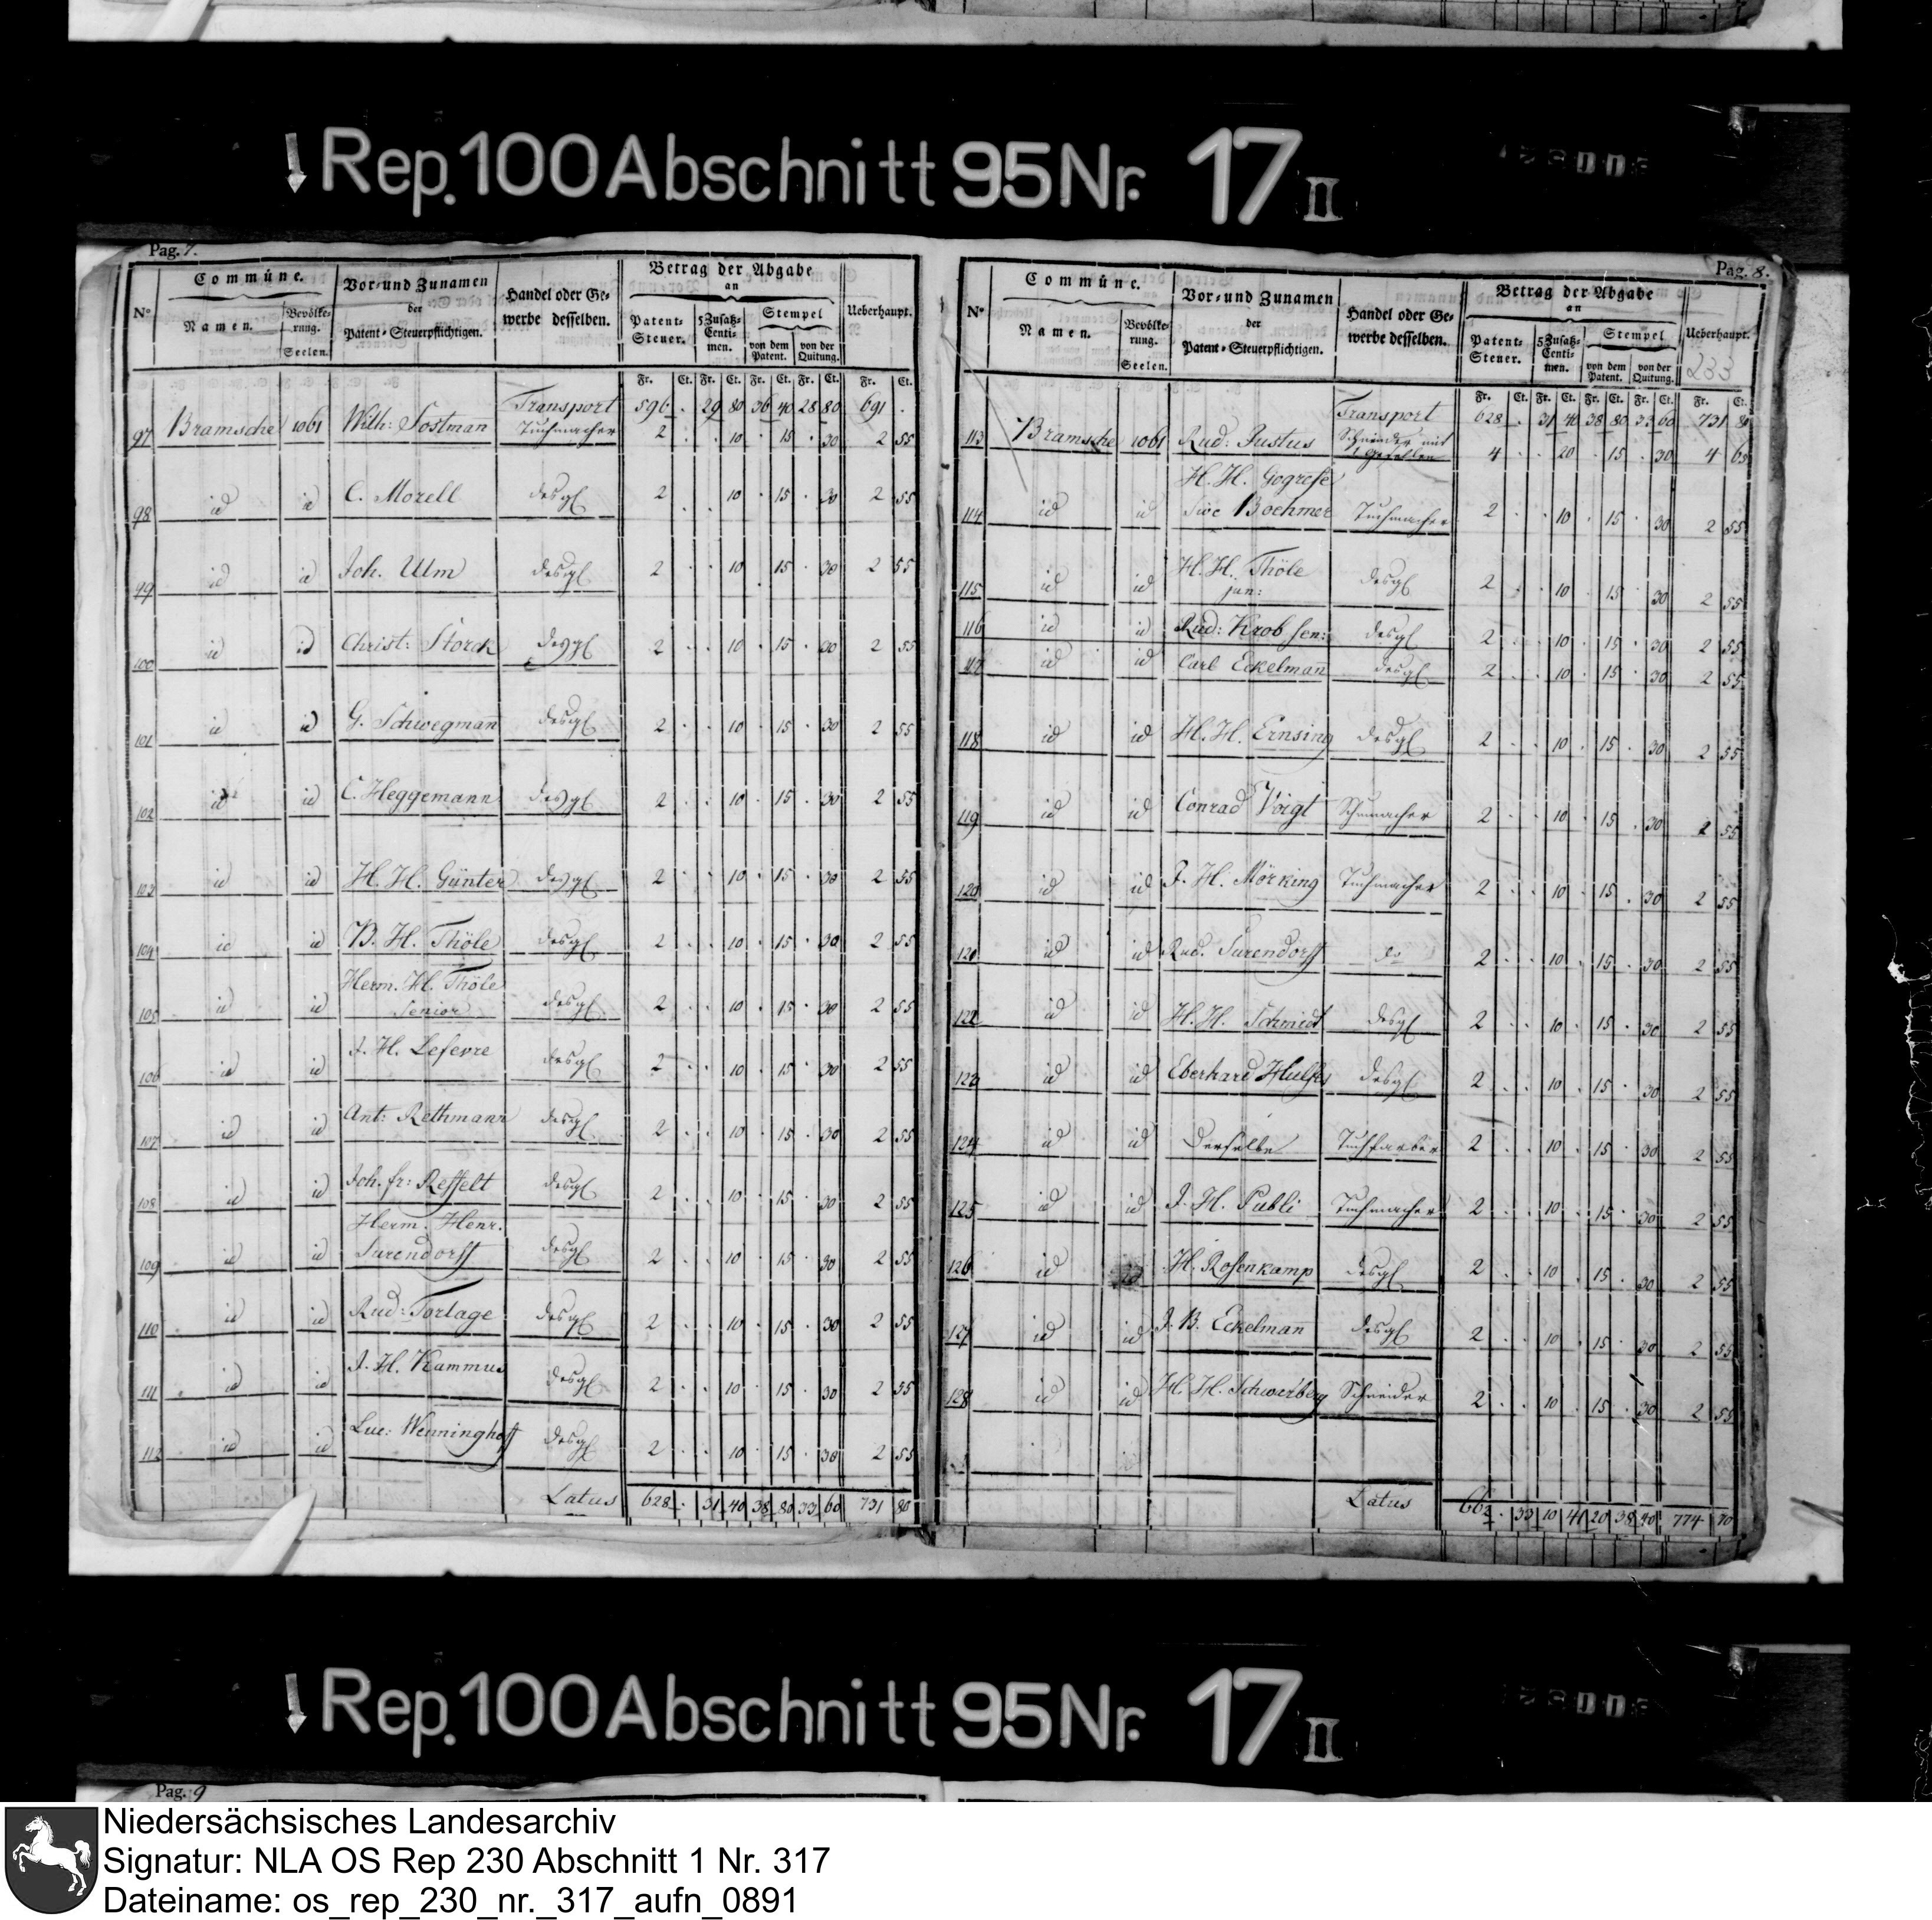 Rep. 100 Abschnitt 95 Nr. 17 II
Pag. 7.
N° Commúne. Vor- und Zunamen der Patent-Steuerpflichtigen. Handel oder Gewerbe desselben. Betrag der Abgabe an Ueberhaupt.
Namen. Bevölkerung. Seelen. Patent-Steuer. 5 Zusatz-Centimen. Stempel von dem Patent. von der Quitung.
Fr. Ct. Fr. Ct. Fr. Ct. Fr. Ct. Fr. Ct.
Transport 596 . 29 80 36 40 28 80 691 .
97 Bramsche 1061 Wilh: Sostman Tuchmacher 2 . . 10 . 15 . 30 2 55
98 id id C. Morell desgl 2 . . 10 . 15 . 30 2 55
99 id id Joh. Ulm desgl 2 . . 10 . 15 . 30 2 55
100 id id Christ: Storck desgl 2 . . 10 . 15 . 30 2 55
101 id id G. Schwegman desgl 2 . . 10 . 15 . 30 2 55
102 id id C. Heggemann desgl 2 . . 10 . 15 . 30 2 55
103 id id H. H. Günter desgl 2 . . 10 . 15 . 30 2 55
104 id id B. H. Thöle desgl 2 . . 10 . 15 . 30 2 55
105 id id Herm. H. Thöle Senior desgl 2 . . 10 . 15 . 30 2 55
106 id id J. H. Lefevre desgl 2 . . 10 . 15 . 30 2 55
107 id id Ant: Rethmann desgl 2 . . 10 . 15 . 30 2 55
108 id id Joh. fr: Resselt desgl 2 . . 10 . 15 . 30 2 55
109 id id Herm. Henr. Surendorff desgl 2 . . 10 . 15 . 30 2 55
110 id id Rud: Torlage desgl 2 . . 10 . 15 . 30 2 55
111 id id J. H. Kammus desgl 2 . . 10 . 15 . 30 2 55
112 id id Luc: Wenninghoff desgl 2 . . 10 . 15 . 30 2 55
Latus 628 . 31 40 38 80 33 60 731 80
Pag. 8.
N° Commúne. Vor- und Zunamen der Patent-Steuerpflichtigen. Handel oder Gewerbe desselben. Betrag der Abgabe an Ueberhaupt.
Namen. Bevölkerung. Seelen. Patent-Steuer. 5 Zusatz-Centimen. Stempel von dem Patent. von der Quitung.
233
Fr. Ct. Fr. Ct. Fr. Ct. Fr. Ct. Fr. Ct.
Transport 628 . 31 40 38 80 33 60 731 80
113 Bramsche 1061 Rud: Justus Schneider mit 1 Gesellen 4 . . 20 . 15 . 30 4 65
114 id id H. H. Gogrefe sive Boehmer Tuchmacher 2 . . 10 . 15 . 30 2 55
115 id id H. H. Thöle jun: desgl 2 . . 10 . 15 . 30 2 55
116 id id Rud: Krob sen: desgl 2 . . 10 . 15 . 30 2 55
117 id id Carl Eckelman desgl 2 . . 10 . 15 . 30 2 55
118 id id H. H. Ernsing desgl 2 . . 10 . 15 . 30 2 55
119 id id Conrad Voigt Schumacher 2 . . 10 . 15 . 30 2 55
120 id id J. H. Mörking Tuchmacher 2 . . 10 . 15 . 30 2 55
121 id id Rud. Surendorff do 2 . . 10 . 15 . 30 2 55
122 id id H. H. Schmidt desgl 2 . . 10 . 15 . 30 2 55
123 id id Eberhard Hulses desgl 2 . . 10 . 15 . 30 2 55
124 id id Derselbe Tuchfarber 2 . . 10 . 15 . 30 2 55
125 id id J. H. Pabli Tuchmacher 2 . . 10 . 15 . 30 2 55
126 id id H. Rosenkamp desgl 2 . . 10 . 15 . 30 2 55
127 id id J. B. Eckelman desgl 2 . . 10 . 15 . 30 2 55
128 id id H. H. Schwerberg Schneider 2 . . 10 . 15 . 30 2 55
Latus 662 . 33 10 41 20 38 40 774 70
Rep. 100 Abschnitt 95 Nr. 17 II
Pag. 9
Niedersächsisches Landesarchiv
Signatur: NLA OS Rep 230 Abschnitt 1 Nr. 317
Dateiname: os_rep_230_nr._317_aufn_0891